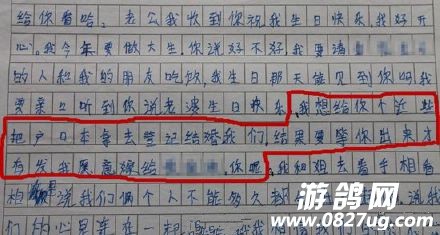 给你看哈。老公我收到你祝我生日快乐,我好开
心。我今年要做大生,你说好不好,我要请
的人和我的朋友吃饭,我生日那天能见到你吗,我
要亲口听到你说老婆生日快乐,我想给你
把户口本拿去登记结婚我们,结果要等你出来才
有发我愿意嫁给 你嗯。我和姐去看手相看
相 说我们俩个人不能多久都
们的心是连在一起
游鸽网
www.0827ug.com